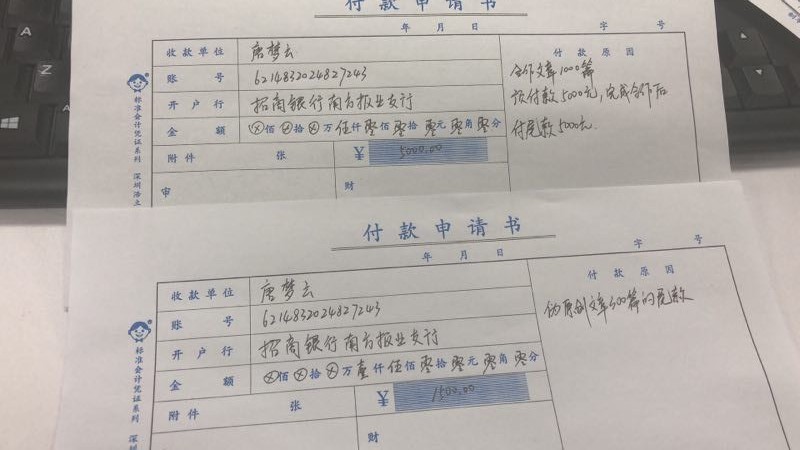 付款申请书
年 月 日
字 号
收款单位 唐梦云
付款原因
账 号 6214832024827243
合作文章1000篇
预付款5000元,完成合作后
付尾款5000元.
开户行 招商银行南方报业支行
金 额 ⊗佰⊗拾⊗万伍仟零佰零拾零元零角零分
附件 张 ¥ 5000.00
审 财
标准会计凭证系列 深圳浩立
付款申请书
年 月 日
字 号
收款单位 唐梦云
付款原因
账 号 6214832024827243
伪原创文章500篇的尾款
开户行 招商银行南方报业支行
金 额 ⊗佰⊗拾⊗万壹仟伍佰零拾零元零角零分
附件 张 ¥ 1500.00
财
标准会计凭证系列 深